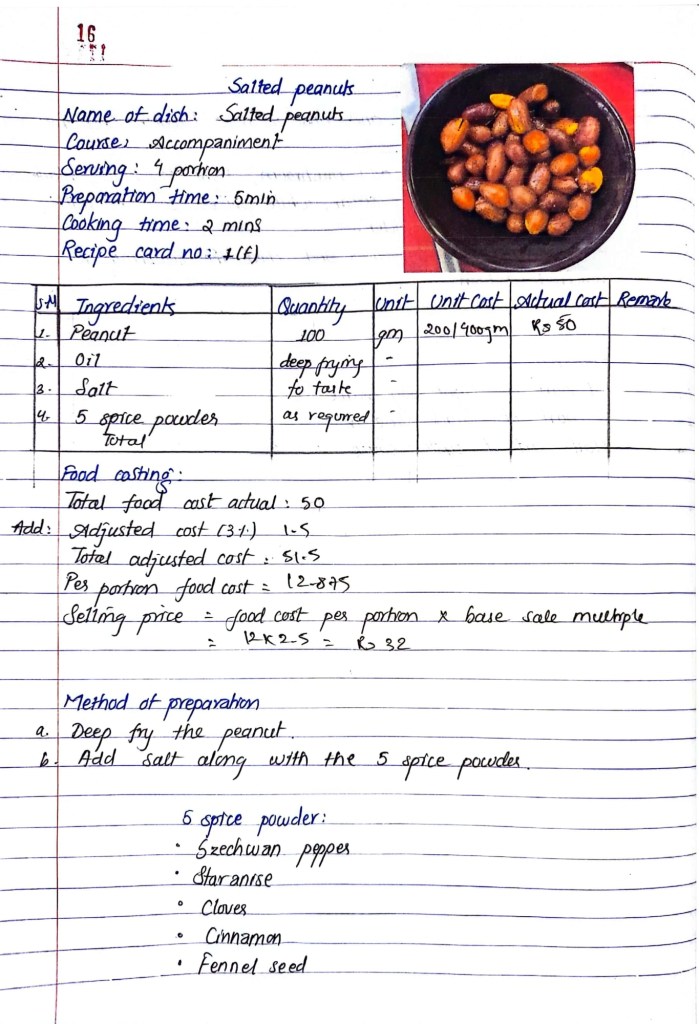 16
Salted peanuts
Name of dish: Salted peanuts
Course: Accompaniment
Serving: 4 portion
Preparation time: 5min
Cooking time: 2 mins
Recipe card no: 1(f)
S.N Ingredients Quantity Unit Unit Cost Actual Cost Remark
1. Peanut 100 gm 200/400gm Rs 50
2. Oil deep frying -
3. Salt to taste -
4. 5 spice powder as required -
Total
Food costing:
Total food cost actual: 50
Add: Adjusted cost (3%) 1.5
Total adjusted cost: 51.5
Per portion food cost = 12.875
Selling price = food cost per portion x base sale multiple
= 12x2.5 = Rs 32
Method of preparation
a. Deep fry the peanut.
b. Add salt along with the 5 spice powder.
5 spice powder:
• Szechwan pepper
• Staranise
• Cloves
• Cinnamon
• Fennel seed